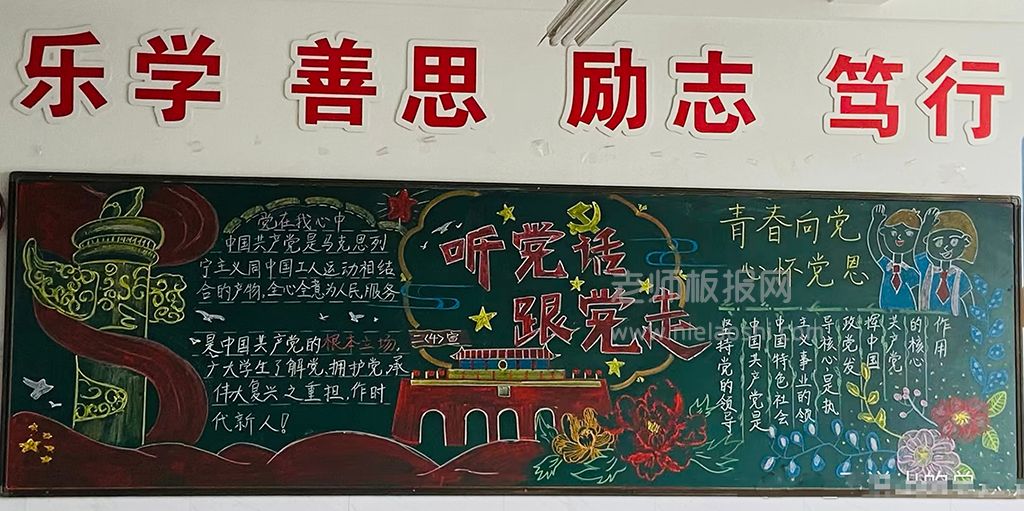 乐学 善思 励志 笃行
党在我心中
中国共产党是马克思列
宁主义同中国工人运动相结
合的产物,全心全意为人民服务
是中国共产党的根本立场,
广大学生了解党,拥护党,承
伟大复兴之重担,作时
代新人!
三(4)宣
听党话
跟党走
青春向党
心怀党恩
老师板报网
作用
的核心
共产党
挥中国
政党发
导核心是执
主义事业的领
中国特色社会
中国共产党是
坚持党的领导